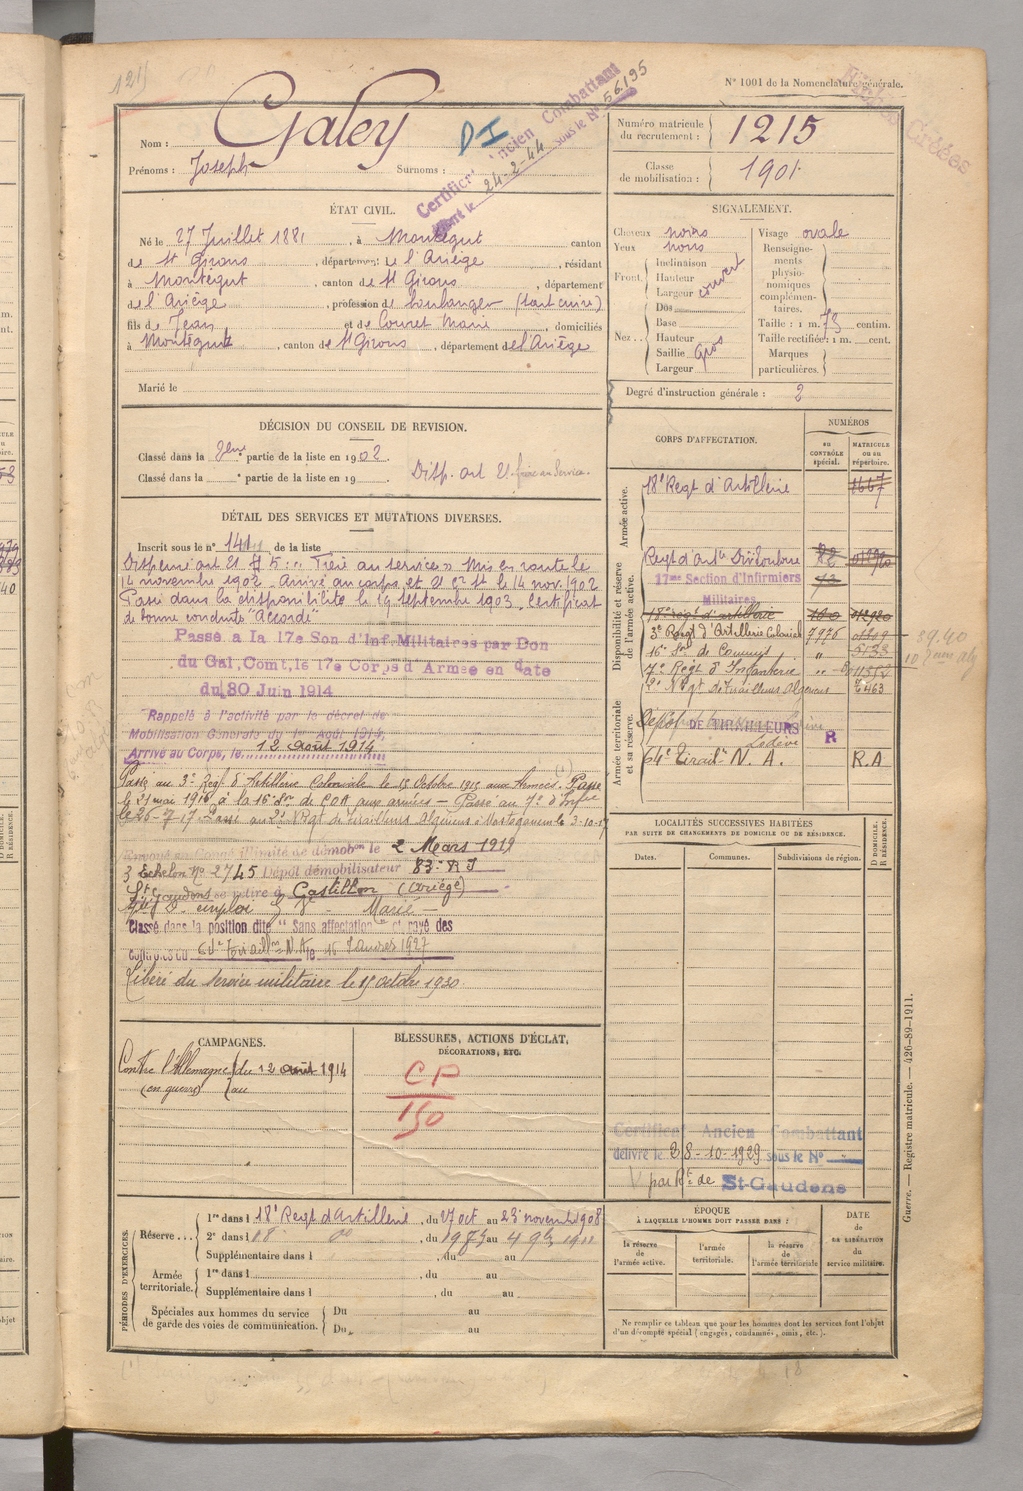 1215
N° 1001 de la Nomenclature générale.
Nom : Galey
Prénoms : Joseph Surnoms :
DI
Certificat Ancien Combattant
24-2-44 sous le N° 56.195
Numéro matricule du recrutement : 1215
Classe de mobilisation : 1901
ÉTAT CIVIL.
Né le 27 Juillet 1881, à Montégut canton
de St Girons, département de l'Ariège, résidant
à Montégut, canton de St Girons, département
de l'Ariège, profession de boulanger (tout cuire)
fils de Jean et de Couret Marie, domiciliés
à Montégut, canton de St Girons, département de l'Ariège
Marié le
SIGNALEMENT.
Cheveux noirs Visage ovale
Yeux noirs
Front. Inclinaison
Hauteur
Largeur couvert
Nez. Dos
Base
Hauteur
Saillie Gros
Largeur
Renseignements physionomiques complémentaires.
Taille : 1 m. 73 centim.
Taille rectifiée : 1 m. cent.
Marques particulières.
Degré d'instruction générale : 2
DÉCISION DU CONSEIL DE REVISION.
Classé dans la 2eme partie de la liste en 1902.
Classé dans la partie de la liste en 19
Disp. art 21 frère au Service.
DÉTAIL DES SERVICES ET MUTATIONS DIVERSES.
Inscrit sous le n° 141 de la liste
Dispensé art. 21 § 5 : "Frère au service" Mis en route le
14 novembre 1902. Arrivé au corps et 2e cr st le 14 nov. 1902
Passé dans la disponibilité le 19 septembre 1903. Certificat
de bonne conduite "Accordé"
Passé a la 17e Son d'Inf. Militaires par Don
du Gal. Comt. le 17e Corps d'Armée en date
du 30 Juin 1914
Rappelé à l'activité par le décret de
Mobilisation Générale du 1er Août 1914,
Arrivé au Corps, le 12 Août 1914
Passé au 3e Reg t d'Artillerie Coloniale le 15 Octobre 1915 aux Armées. Passé
le 21 mai 1916 à la 16e Son de COA aux armées – Passé au 7e d'Infie
le 26-7-17 Passé au 2e Régt de Tirailleurs Algériens à Mostaganem le 3-10-17
Envoyé en Congé illimité de démobon le 2 Mars 1919
3 Echelon No 2745 Dépôt démobilisateur 83e RI
St Gaudens se retire à Castillon (Ariège)
Marié
Classé dans la position dite "Sans affectation" et rayé des
contrôles du 64e Tiraillrs N.A le 15 Janvier 1927
Libéré du service militaire le 15 octobre 1930.
CORPS D'AFFECTATION.
NUMÉROS
au CONTRÔLE spécial.
MATRICULE ou au répertoire.
Armée active.
18e Regt d'Artillerie 1667
Disponibilité et réserve de l'armée active.
17me Section d'Infirmiers Militaires
18e régt d'artillerie
3e Regt d'Artillerie Colonial 7976
16e Son de Commis "
7e Regt d'Infanterie "
2e Regt de Tirailleurs Algériens
Armée territoriale et sa réserve.
Dépôt DE TIRAILLEURS R
Lodève
64e Tirailrs N. A. R.A
LOCALITÉS SUCCESSIVES HABITÉES
PAR SUITE DE CHANGEMENTS DE DOMICILE OU DE RÉSIDENCE.
Dates. Communes. Subdivisions de région.
D DOMICILE.
R RÉSIDENCE.
Certificat Ancien Combattant
délivré le 28-10-1929 sous le N°
par Rt de St-Gaudens
CAMPAGNES.
Contre l'Allemagne du 12 août 1914
(en guerre) au
BLESSURES, ACTIONS D'ÉCLAT,
DÉCORATIONS, ETC.
CP
150
PÉRIODES D'EXERCICES.
Réserve
1re dans l 18e Regt d'Artillerie, du 27 oct au 23 novemb 1908
2e dans l 18 do, du
Supplémentaire dans l , du au
Armée territoriale.
1re dans l , du au
Supplémentaire dans l , du au
Spéciales aux hommes du service de garde des voies de communication.
Du au
Du au
ÉPOQUE
À LAQUELLE L'HOMME DOIT PASSER DANS :
la réserve de l'armée active.
l'armée territoriale.
la réserve de l'armée territoriale
DATE DE LIBÉRATION du service militaire.
Ne remplir ce tableau que pour les hommes dont les services font l'objet
d'un décompte spécial (engagés, condamnés, omis, etc.).
Guerre. — Registre matricule. — 426-89-1911.